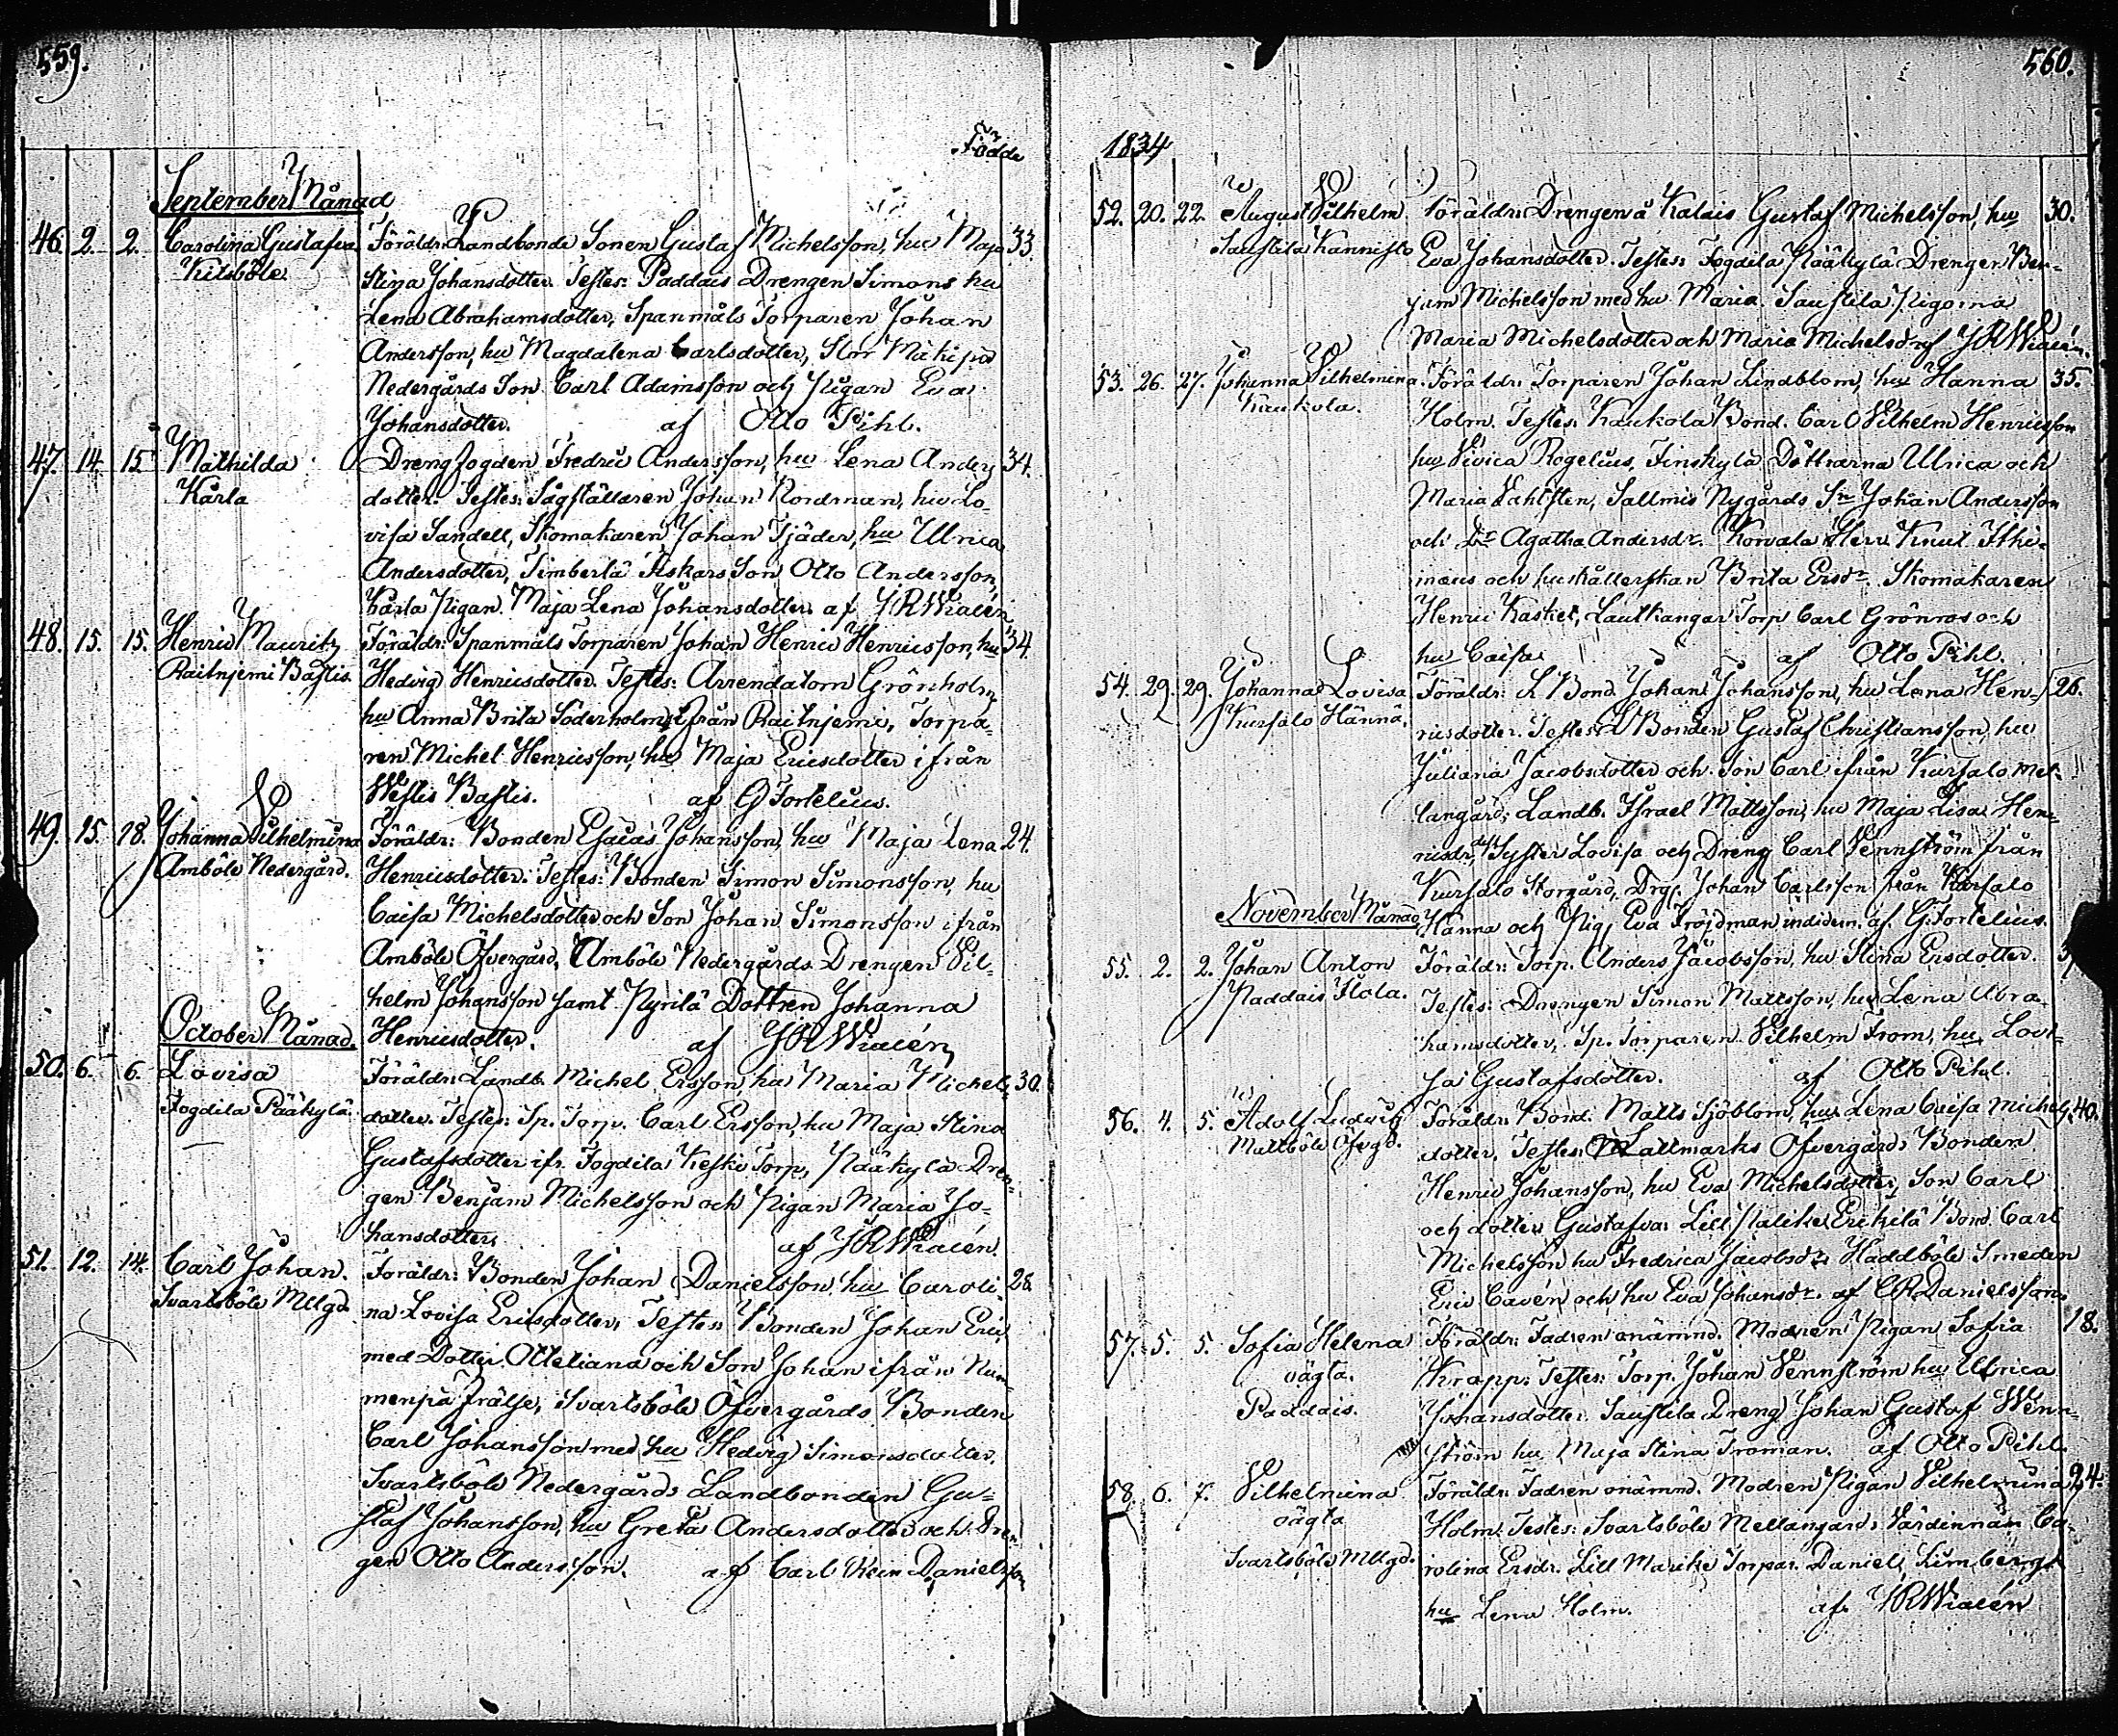 559.
Födde
September Månad
46. 2. 2. Carolina Gustafva Föräldr: Landbonde Sonen Gustaf Michelsson, hu Maja 33.
Kitsböle Stina Johansdotter. Testes: Paddais Drengen Simons hu
Lena Abrahamsdotter, Spanmåls Torparen Johan
Andersson, hu Magdalena Carlsdotter, Stor
Nedergårds Son Carl Adamsson och Pigan Eva
Johansdotter. af Otto Pihl.
47. 14. 15 Mathilda Drengfogden Fredric Andersson, hu Lena Anders 34.
Karla dotter. Testes: Sågställaren Johan Nordman, hu Lo-
visa Sandell, Skomakaren Johan Tjäder, hu Ulrica
Andersdotter, Timberlä Fiskars Son Otto Andersson,
Karla Pigan Maja Lena Johansdotter. af JRWialén
48. 15. 15. Henric Mauritz Föräldr: Spanmåls Torparen Johan Henric Henricsson, hu 34.
Raitnjemi Bastis. Hedvig Henricsdotter. Testes: Arrendatorn Grönholm
hu Anna Brita Söderholm ifrån Raitnjemi, Torpa-
ren Michel Henricsson, hu Maja Ericsdotter ifrån
Westis Bastis. af G Fortelius.
49. 15. 18. Johanna Vilhelmina Föräldr: Bonden Esaias Johansson, hu Maja Lena 24.
Amböle Nedergård. Henricsdotter. Testes: Bonden Simon Simonsson, hu
Caisa Michelsdotter och Son Johan Simonsson ifrån
Amböle Öfvergård, Amböle Nedergårds Drengen Vil-
helm Johansson samt Pyrilä Dottren Johanna
October Månad. Henricsdotter. af JRWialén
50. 6. 6. Lovisa Föräldr: Landb. Michel Ersson, hu Maria Michels 30.
Fogdila Pääkylä. dotter. Testes: Sp. Torp. Carl Ersson, hu Maja Stina
Gustafsdotter ifr. Fogdila Keski Torp, Pääkylä Dren-
gen Benjam Michelsson och Pigan Maria Jo-
hansdotter. af JRWialén.
51. 12. 14. Carl Johan. Föräldr: Bonden Johan Danielsson, hu Caroli- 28.
Svartsböle Mllgd. na Lovisa Ericsdotter, Testes: Bonden Johan Erics
med Dotter Otteliana och Son Johan ifrån Num-
menpä Frälse, Svartsböle Öfvergårds Bonden
Carl Johansson med hu Hedvig Simonsdotter.
Svartsböle Nedergårds Landbonden Gu-
staf Johansson, hu Greta Andersdotter och Dren
gen Otto Andersson. af Carl Rein Danielsson
560.
1834
52. 20. 22. August Vilhelm Föräldr: Drengen å Kalais Gustaf Michelsson, hu 30.
Saustila Kannisto Eva Johansdotter. Testes: Fogdila Pääkylä Drengen Ben-
jam Michelsson med hu Maria, Saustila Pigorna
Maria Michelsdotter och Maria Michelsd: af JRWialén.
53. 26. 27. Johanna Vilhelmina. Föräldr: Torparen Johan Lindblom, hu Hanna 35.
Kaukola. Holm. Testes: Kaukola Bond. Carl Vilhelm Henricsson
hu Vivica Rogelius, Finskylä Döttrarna Ulrica och
Maria Dahlsten, Sallmis Nygårds Sn Johan Andersson
och Dr Agatha Andersdr. Korvala Herr Knut Ithi-
maeus och hushållerskan Brita Ersdr. Skomakaren
Henric Kasket, Lautkangar Torp Carl Grönroos och
hu Caisa. af Otto Pihl.
54. 29. 29. Johanna Lovisa Föräldr: L Bond. Johan Johansson, hu Lena Hen- 26.
Kursalo Hännä. ricsdotter. Testes: L Bonden Gustaf Christiansson, hu
Juliana Jacobsdotter och Son Carl ifrån Kursalo Mel-
langård, Landb. Israel Mattsson, hu Maja Lisa Hen-
ricsdr, dess Syster Lovisa och Dreng Carl Vennström från
Kursalo Storgård, Drg. Johan Carlsson från Kursalo
November Månad Hännä och Pig. Eva Fröjdman indidem. af G Fortelius.
55. 2. 2. Johan Anton Föräldr: Torp. Anders Jacobsson, hu Stina Ersdotter.
Paddais Flola. Testes: Drengen Simon Mattsson, hu Lena Abra-
hamsdotter, Sp. Torparen Vilhelm From, hu Lovi-
sa Gustafsdotter. af Otto Pihl.
56. 4. 5. Adolf Ludvig Föräldr: Bond. Matts Sjöblom, hu Lena Caisa Michels 40.
Mattböle Öfvgd. dotter. Testes: Lallmarks Öfvergårds Bonden
Henric Johansson, hu Eva Michelsdotter, Son Carl
och dotter Gustafva. Lill Erikilä Bond. Carl
Michelsson hu Fredrica Jacobsdr. Haddböle Smeden
Eric Cavén och hu Eva Johansdr. af CRDanielsson.
57. 5. 5. Sofia Helena Föräldr: Fadren onämnd. Modren Pigan Sofia 18.
oägta. Krapp. Testes: Torp. Johan Vennström hu Ulrica
Paddais. Johansdotter. Saustila Dreng Johan Gustaf Wenn-
ström hu Maja Stina Troman. af Otto Pihl.
58. 6. 7. Vilhelmina Föräldr: Fadren onämnd. Modren Pigan Vilhelmina 24.
oägta Holm. Testes: Svartsböle Mellangårds Värdinnan Ca-
Svartsböle Mllgd. rolina Ersdr. Lill Torpar. Daniel Limberg
hu Lena Holm. af JRWialén